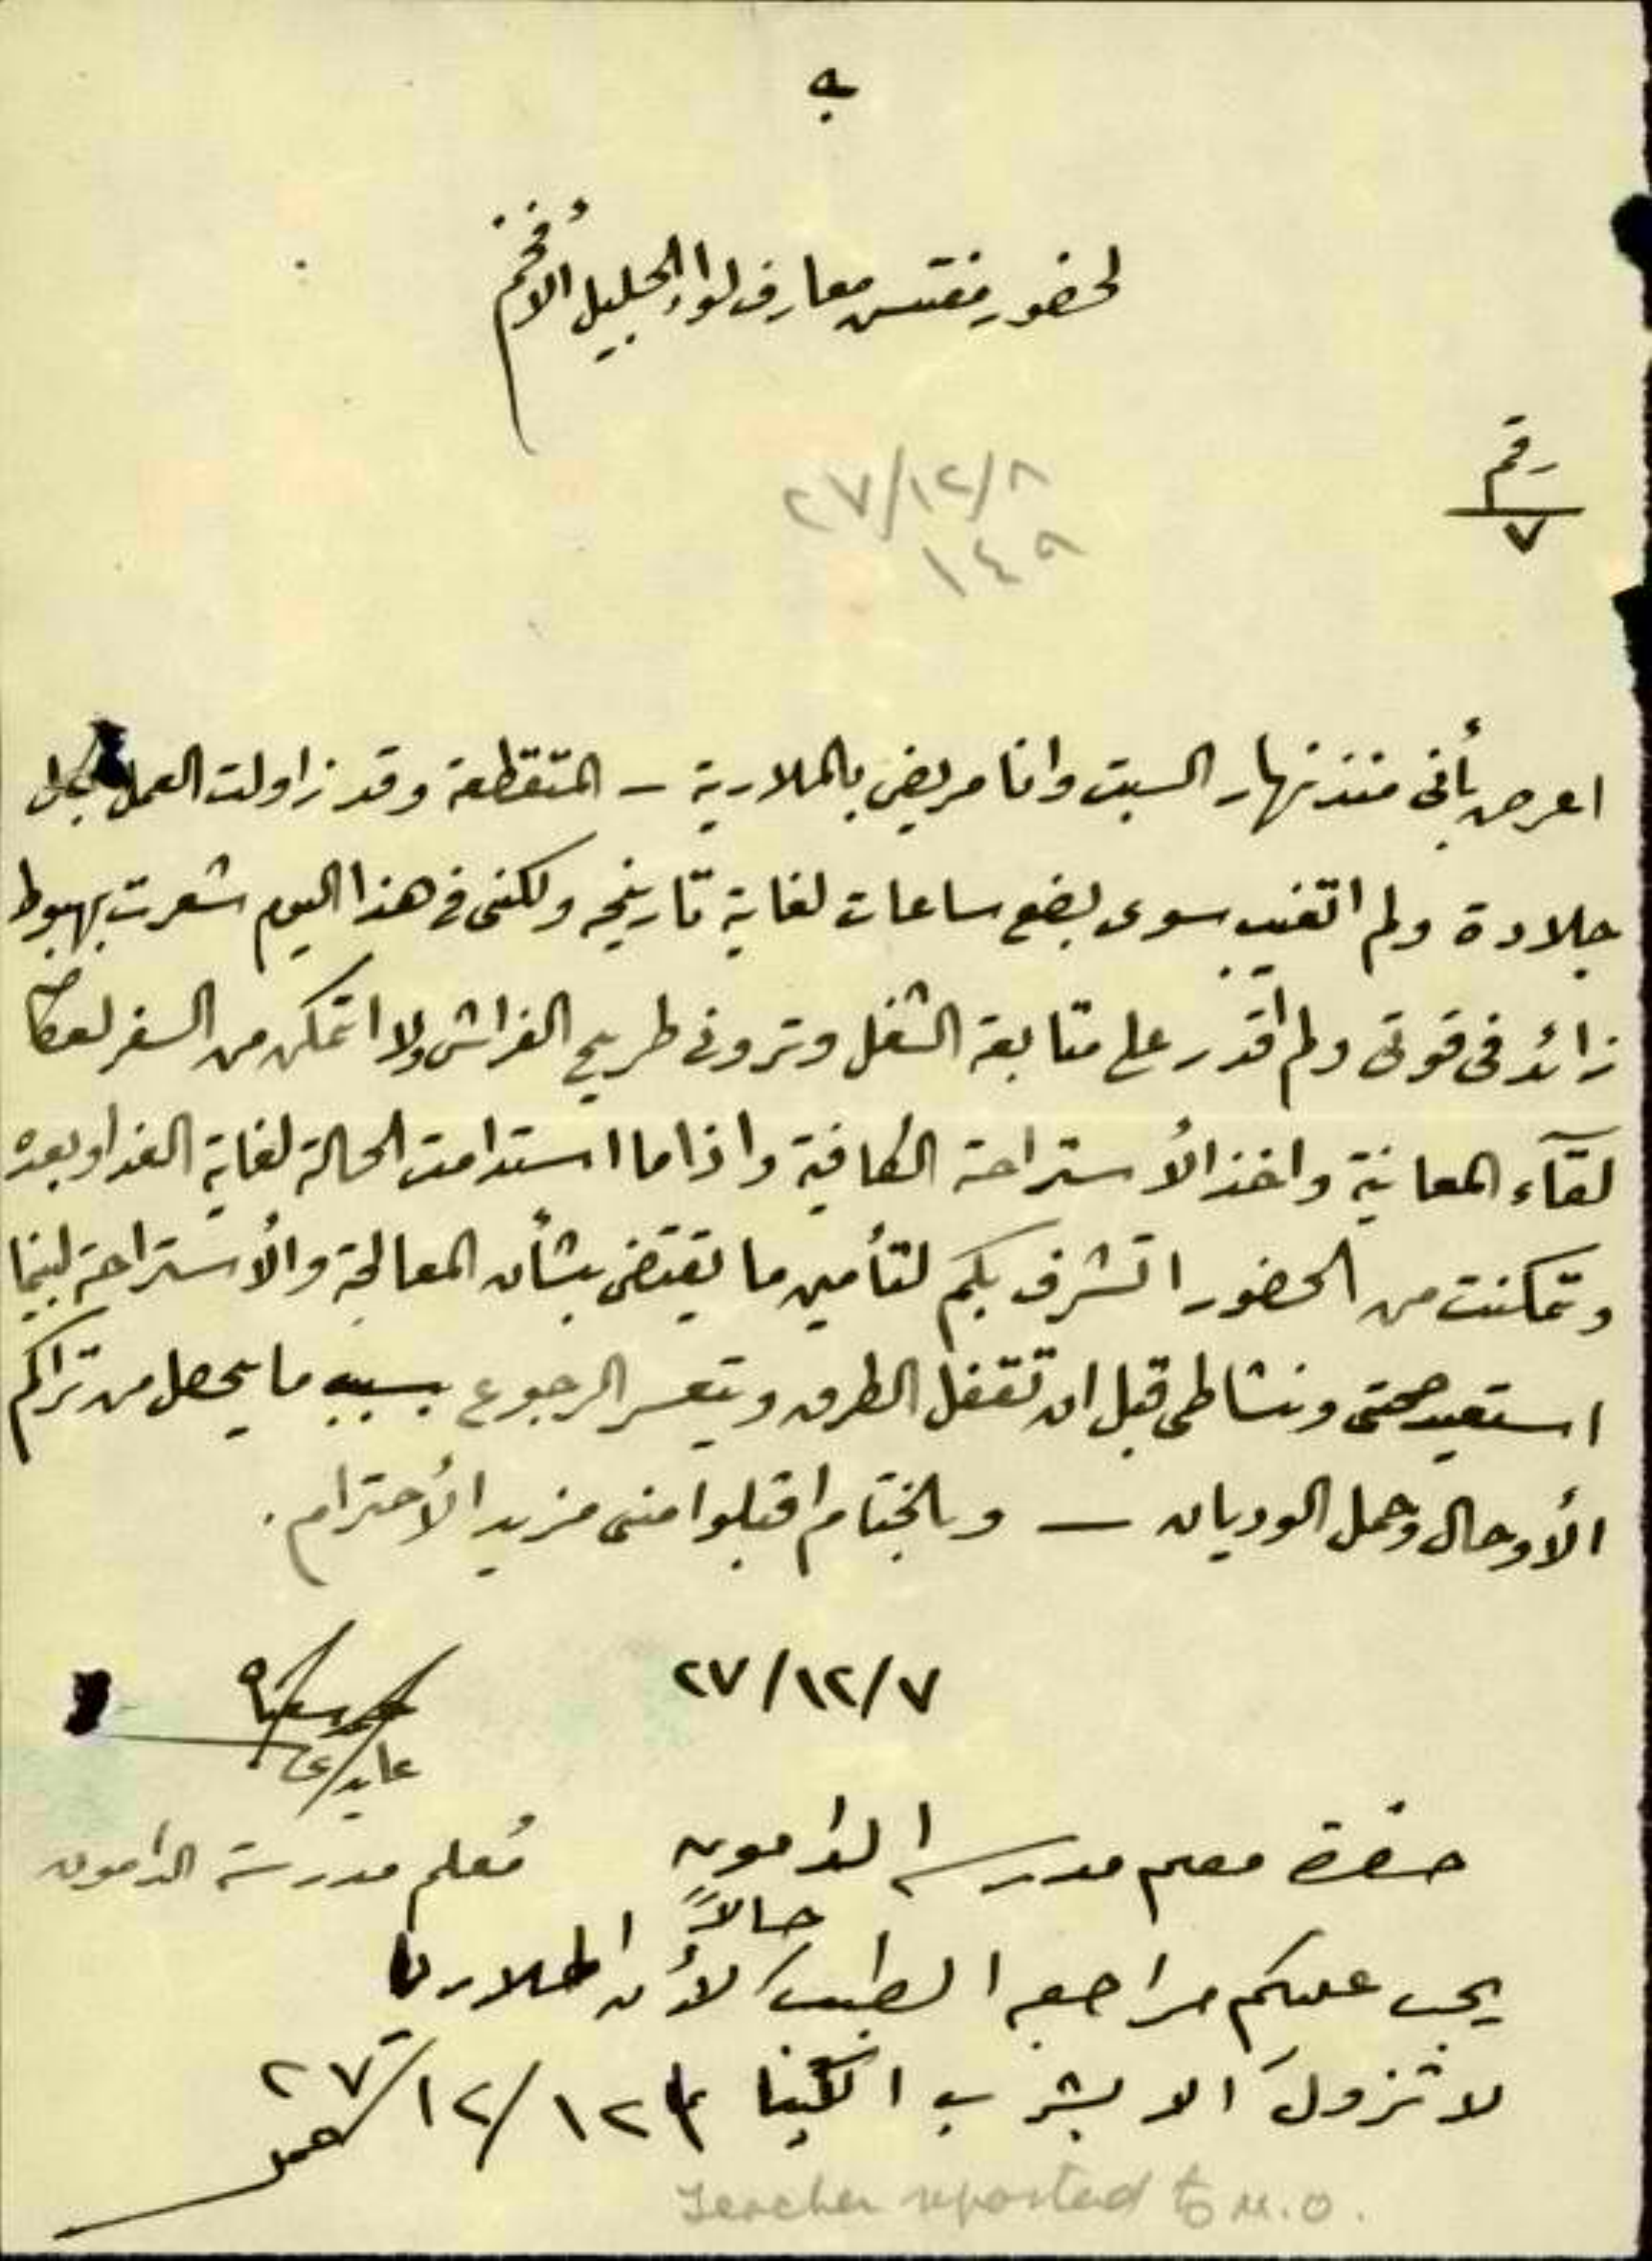 لحضور مفتش معارف لواء الجليل الأفخم
رقم
٧
٢٧/١٢/٨
١٤٩
اعرض بأنى منذ نهار السبت وانا مريض بالملارية – المتقطعة وقد زاولت العمل بكل
جلادة ولم اتغيب سوى بضع ساعات لغاية تاريخه ولكنى فى هذا اليوم شعرت بهبوط
زائد فى قوتى ولم اقدر على متابعة الشغل وترونى طريح الفراش ولا اتمكن من السفر لعكا
لقآء المعاينة واخذ الأستراحة الكافية واذا ما استدامت الحالة لغاية الغد او بعده
وتمكنت من الحضور اتشرف بكم لتأمين ما يقتضى بشأن المعالجة والأستراحة لبينما
استعيد صحتى ونشاطى قبل ان تقفل الطرق ويتعسر الرجوع بسبب ما يحصل من تراكم
الأوحال وحمل الوديان – وبالختام اقبلوا منى مزيد الأحترام.
٢٧/١٢/٧
معلم مدرسة الدامون
حضرة معلم مدرسة الدامون
يجب عليكم مراجعة الطبيب حالاً لأن الملاريا
لا تزول الا بشرب الكينا ١٢/١٢/٢٧
Teacher reported to M.O.